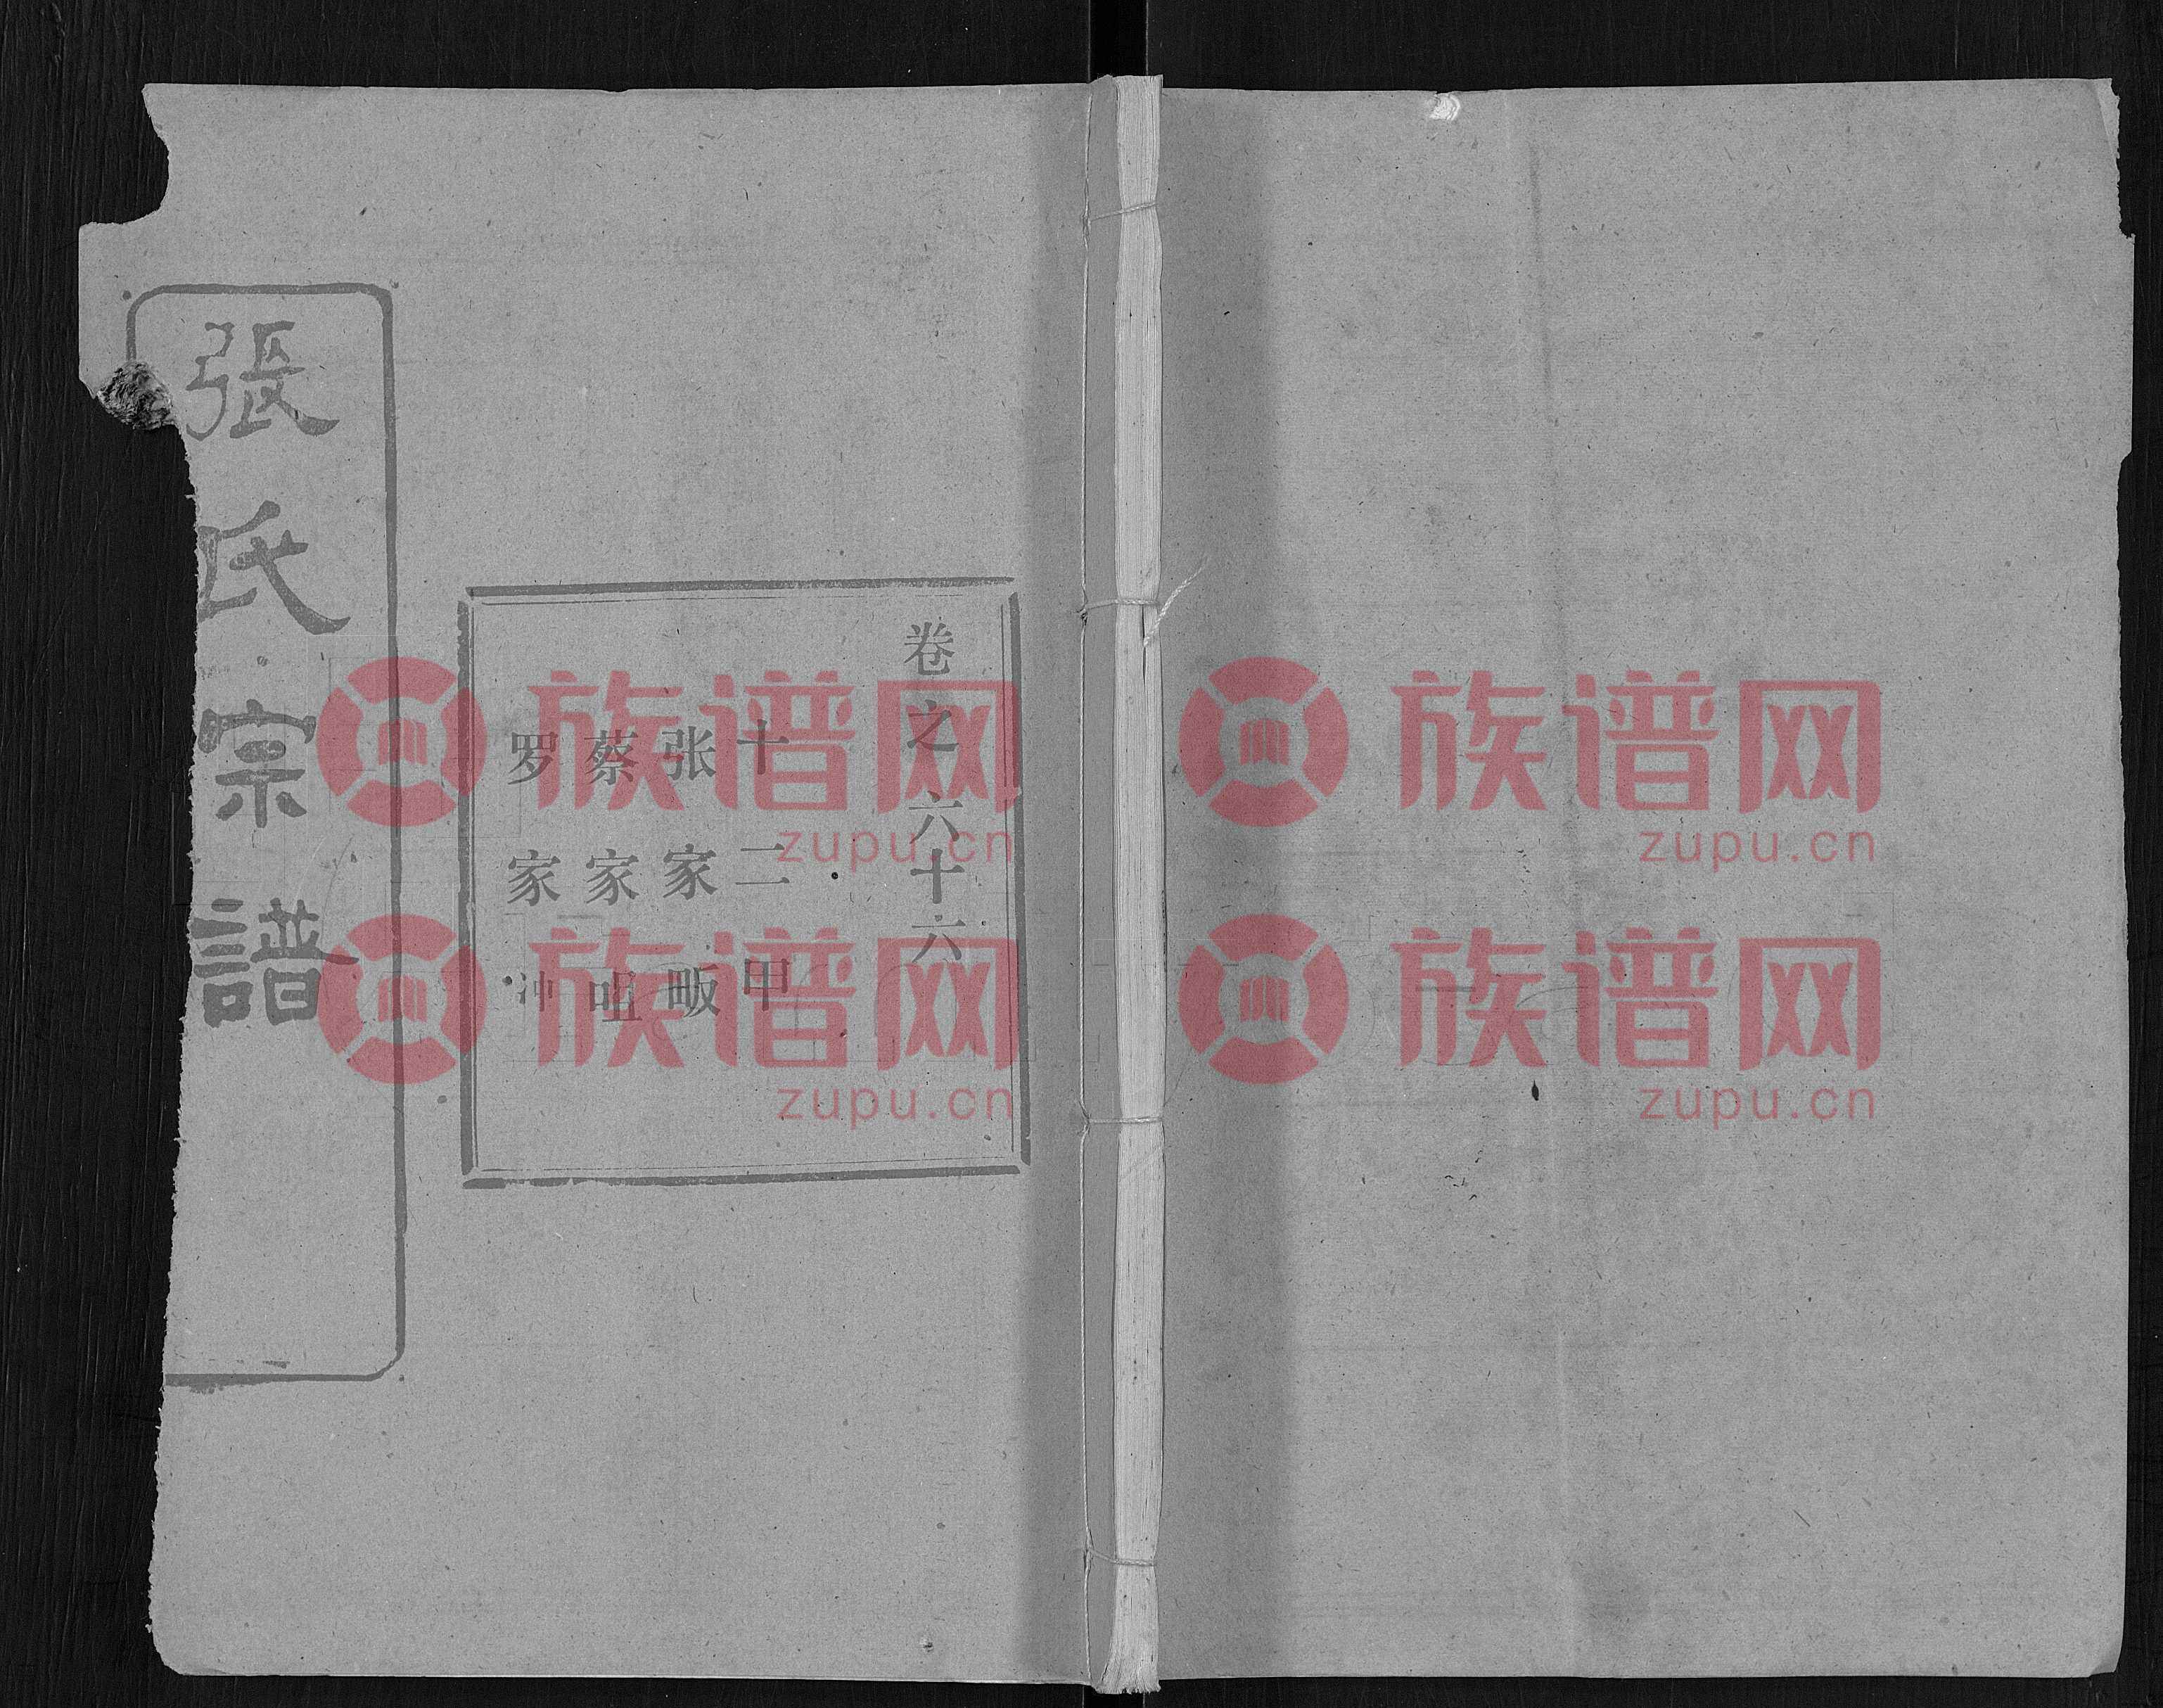 張氏宗譜
卷之六十六
十二甲
张家畈
蔡家咀
罗家冲
族谱网
zupu.cn
族谱网
zupu.cn
族谱网
zupu.cn
族谱网
zupu.cn